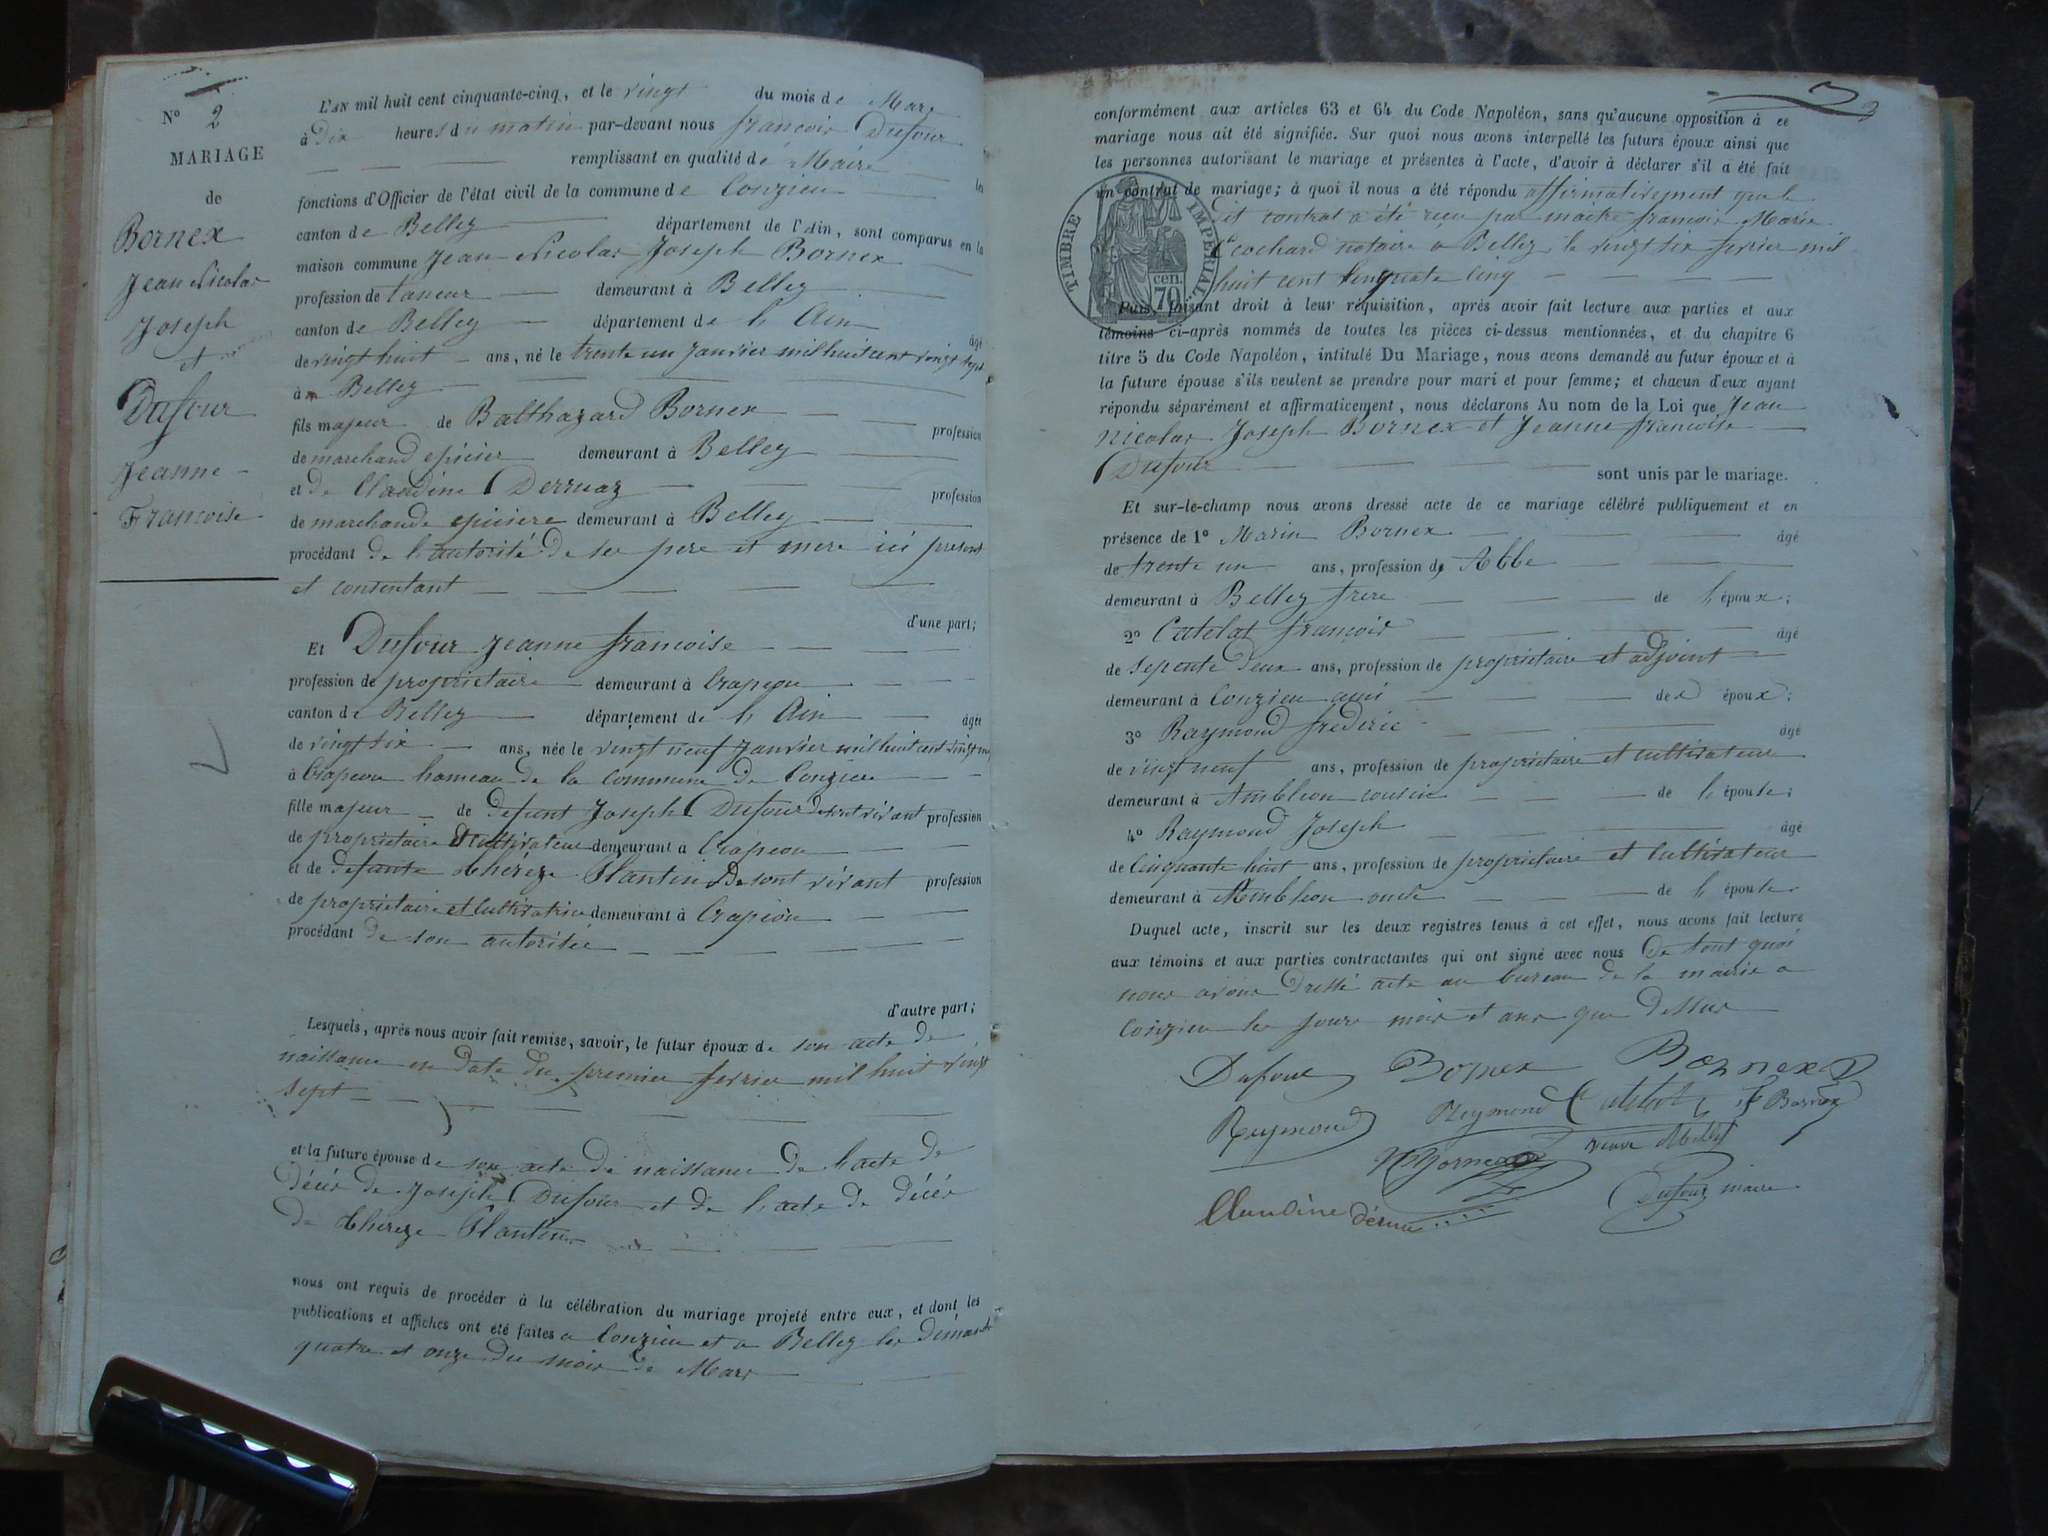 N° 2
MARIAGE
de
Bornex
Jean Nicolas
Joseph
et
Dufour
Jeanne
Françoise
L'AN mil huit cent cinquante-cinq, et le vingt du mois de Mars
à dix heures du matin par-devant nous françois Dufour
remplissant en qualité de Maire les
fonctions d'Officier de l'état civil de la commune de Conzieu
canton de Belley département de l'Ain, sont comparus en la
maison commune Jean Nicolas Joseph Bornex
profession de taneur demeurant à Belley
canton de Belley département de l'Ain âgé
de vingt huit ans, né le trente un janvier mil huit cent vingt sept
à Belley
fils majeur de Balthazard Bornex profession
de marchand epicier demeurant à Belley
et de Claudine Derruaz profession
de marchande epiciere demeurant à Belley
procédant de l'autorité de ses pere et mere ici present
et consentant
d'une part;
Et Dufour Jeanne françoise
profession de propriétaire demeurant à Crapeou
canton de Belley département de l'Ain âgée
de vingt six ans, née le vingt neuf janvier mil huit cent vingt
à Crapeou hameau de la commune de Conzieu
fille majeur de defunt Joseph Dufour de son vivant profession
de propriétaire et cultivateur demeurant à Crapeou
et de defunte thérèze Plantin de sont vivant profession
de propriétaire et cultivatrice demeurant à Crapeou
procédant de son autoritée
d'autre part;
Lesquels, après nous avoir fait remise, savoir, le futur époux de son acte de
naissance en date du premier fevrier mil huit vingt
sept
et la future épouse de son acte de naissance de l'acte de
décès de Joseph Dufour et de l'acte de décès
de thereze Plantin
nous ont requis de procéder à la célébration du mariage projeté entre eux, et dont les
publications et affiches ont été faites a Conzieu et a Belley les dimanche
quatre et onze du mois de Mars
2
conformément aux articles 63 et 64 du Code Napoléon, sans qu'aucune opposition à ce
mariage nous ait été signifiée. Sur quoi nous avons interpellé les futurs époux ainsi que
les personnes autorisant le mariage et présentes à l'acte, d'avoir à déclarer s'il a été fait
un contrat de mariage; à quoi il nous a été répondu affirmativement que le
dit contrat a été reçu par maitre francois Marie
Cochard notaire à Belley le vingt six fevrier mil
huit cent cinquante cinq
TIMBRE IMPERIAL
70 cen.
Puis, faisant droit à leur réquisition, après avoir fait lecture aux parties et aux
témoins ci-après nommés de toutes les pièces ci-dessus mentionnées, et du chapitre 6
titre 5 du Code Napoléon, intitulé Du Mariage, nous avons demandé au futur époux et à
la future épouse s'ils veulent se prendre pour mari et pour femme; et chacun d'eux ayant
répondu séparément et affirmativement, nous déclarons Au nom de la Loi que Jean
nicolas Joseph Bornex et Jeanne francoise
Dufour sont unis par le mariage.
Et sur-le-champ nous avons dressé acte de ce mariage célébré publiquement et en
présence de 1° Marin Bornex âgé
de trente un ans, profession d Abbe
demeurant à Belley frere de l'époux;
2° Catelat francois âgé
de sepente deux ans, profession de propriétaire et adjoint
demeurant à Conzieu ami des époux;
3° Raymond frederic âgé
de vingt neuf ans, profession de propriétaire et cultivateur
demeurant à Ambleon cousin de l'épouse;
4° Raymond Joseph âgé
de cinquante huit ans, profession de propriétaire et cultivateur
demeurant à Ambleon oncle de l'épouse
Duquel acte, inscrit sur les deux registres tenus à cet effet, nous avons fait lecture
aux témoins et aux parties contractantes qui ont signé avec nous De tout quoi
nous avons dressé acte au bureau de la mairie a
Conzieu les jours mois et ans que dessus
Dufour Bornex Bornex
Raymond Reymond Catelat Bornex
Bornex veuve
Claudine Dufour maire